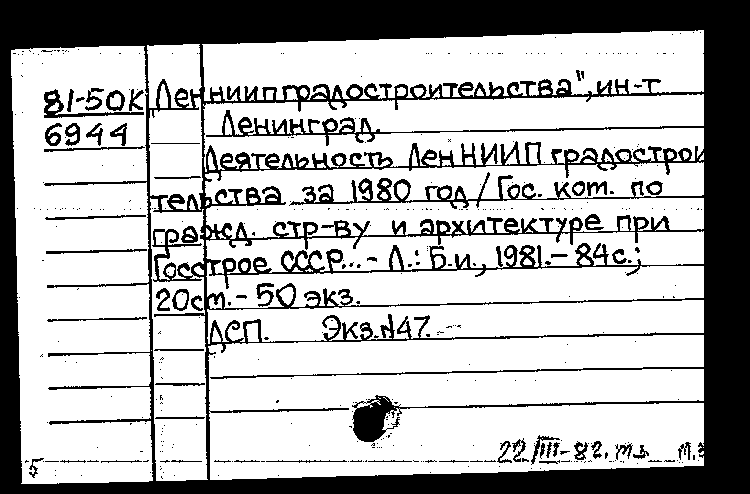 81-50К „Ленниипградостроительства", ин-т
6944 Ленинград.
Деятельность ЛенНИИП градострои
тельства за 1980 год / Гос. ком. по
гражд. стр-ву и архитектуре при
Госстрое СССР... - Л.: Б.и., 1981. - 84 с.;
20 см. - 50 экз.
ДСП. Экз. №47.
22/III-82.
5